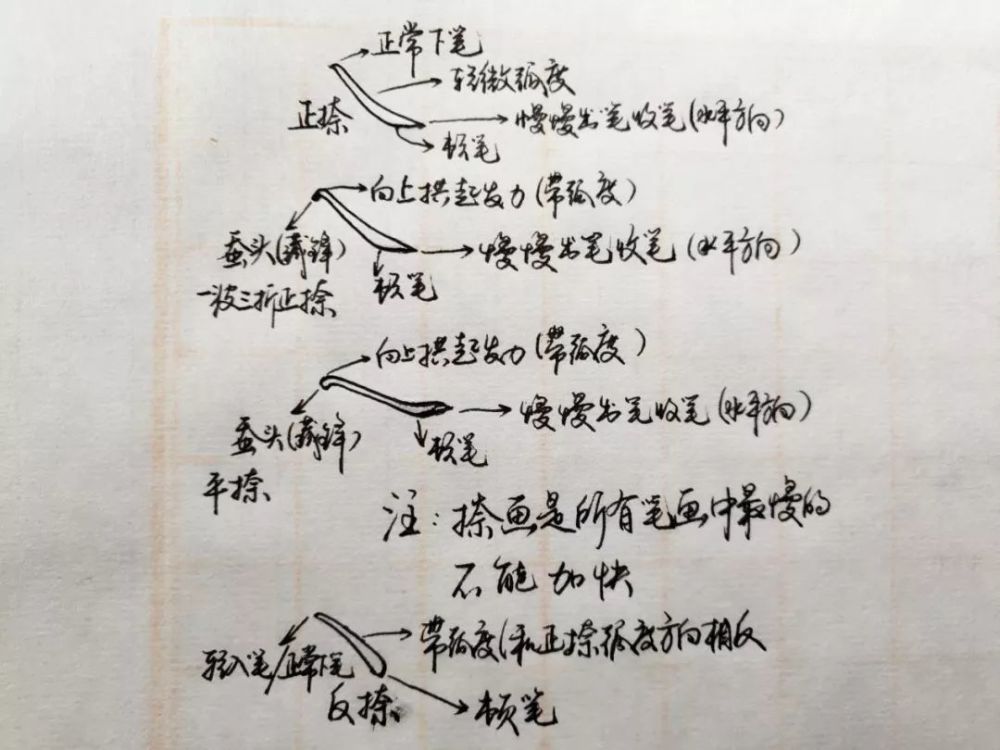 正常下笔
轻微弧度
正捺
慢慢出笔收笔(水平方向)
顿笔
向上拱起发力(带弧度)
蚕头(藏锋)
慢慢出笔收笔(水平方向)
顿笔
一波三折正捺
向上拱起发力(带弧度)
慢慢出笔收笔(水平方向)
蚕头(藏锋)
顿笔
平捺
注:捺画是所有笔画中最慢的
不能加快
带弧度(和正捺弧度方向相反
轻入笔/正常下笔
反捺
顿笔